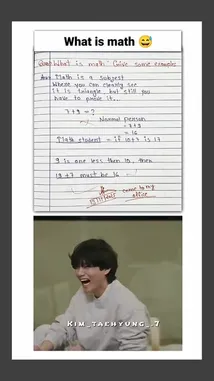 What is math 😅
Ques. What is math? Give some example
Ans. Math is a subject
where you can clearly see
it is triangle but still you
have to prove it..
7+9 = ?
Normal person
= 7+9
= 16
Math student = if 10+7 is 17
9 is one less than 10, then
19+7 must be 16
come to my
office
KIM_TAEHYUNG_7